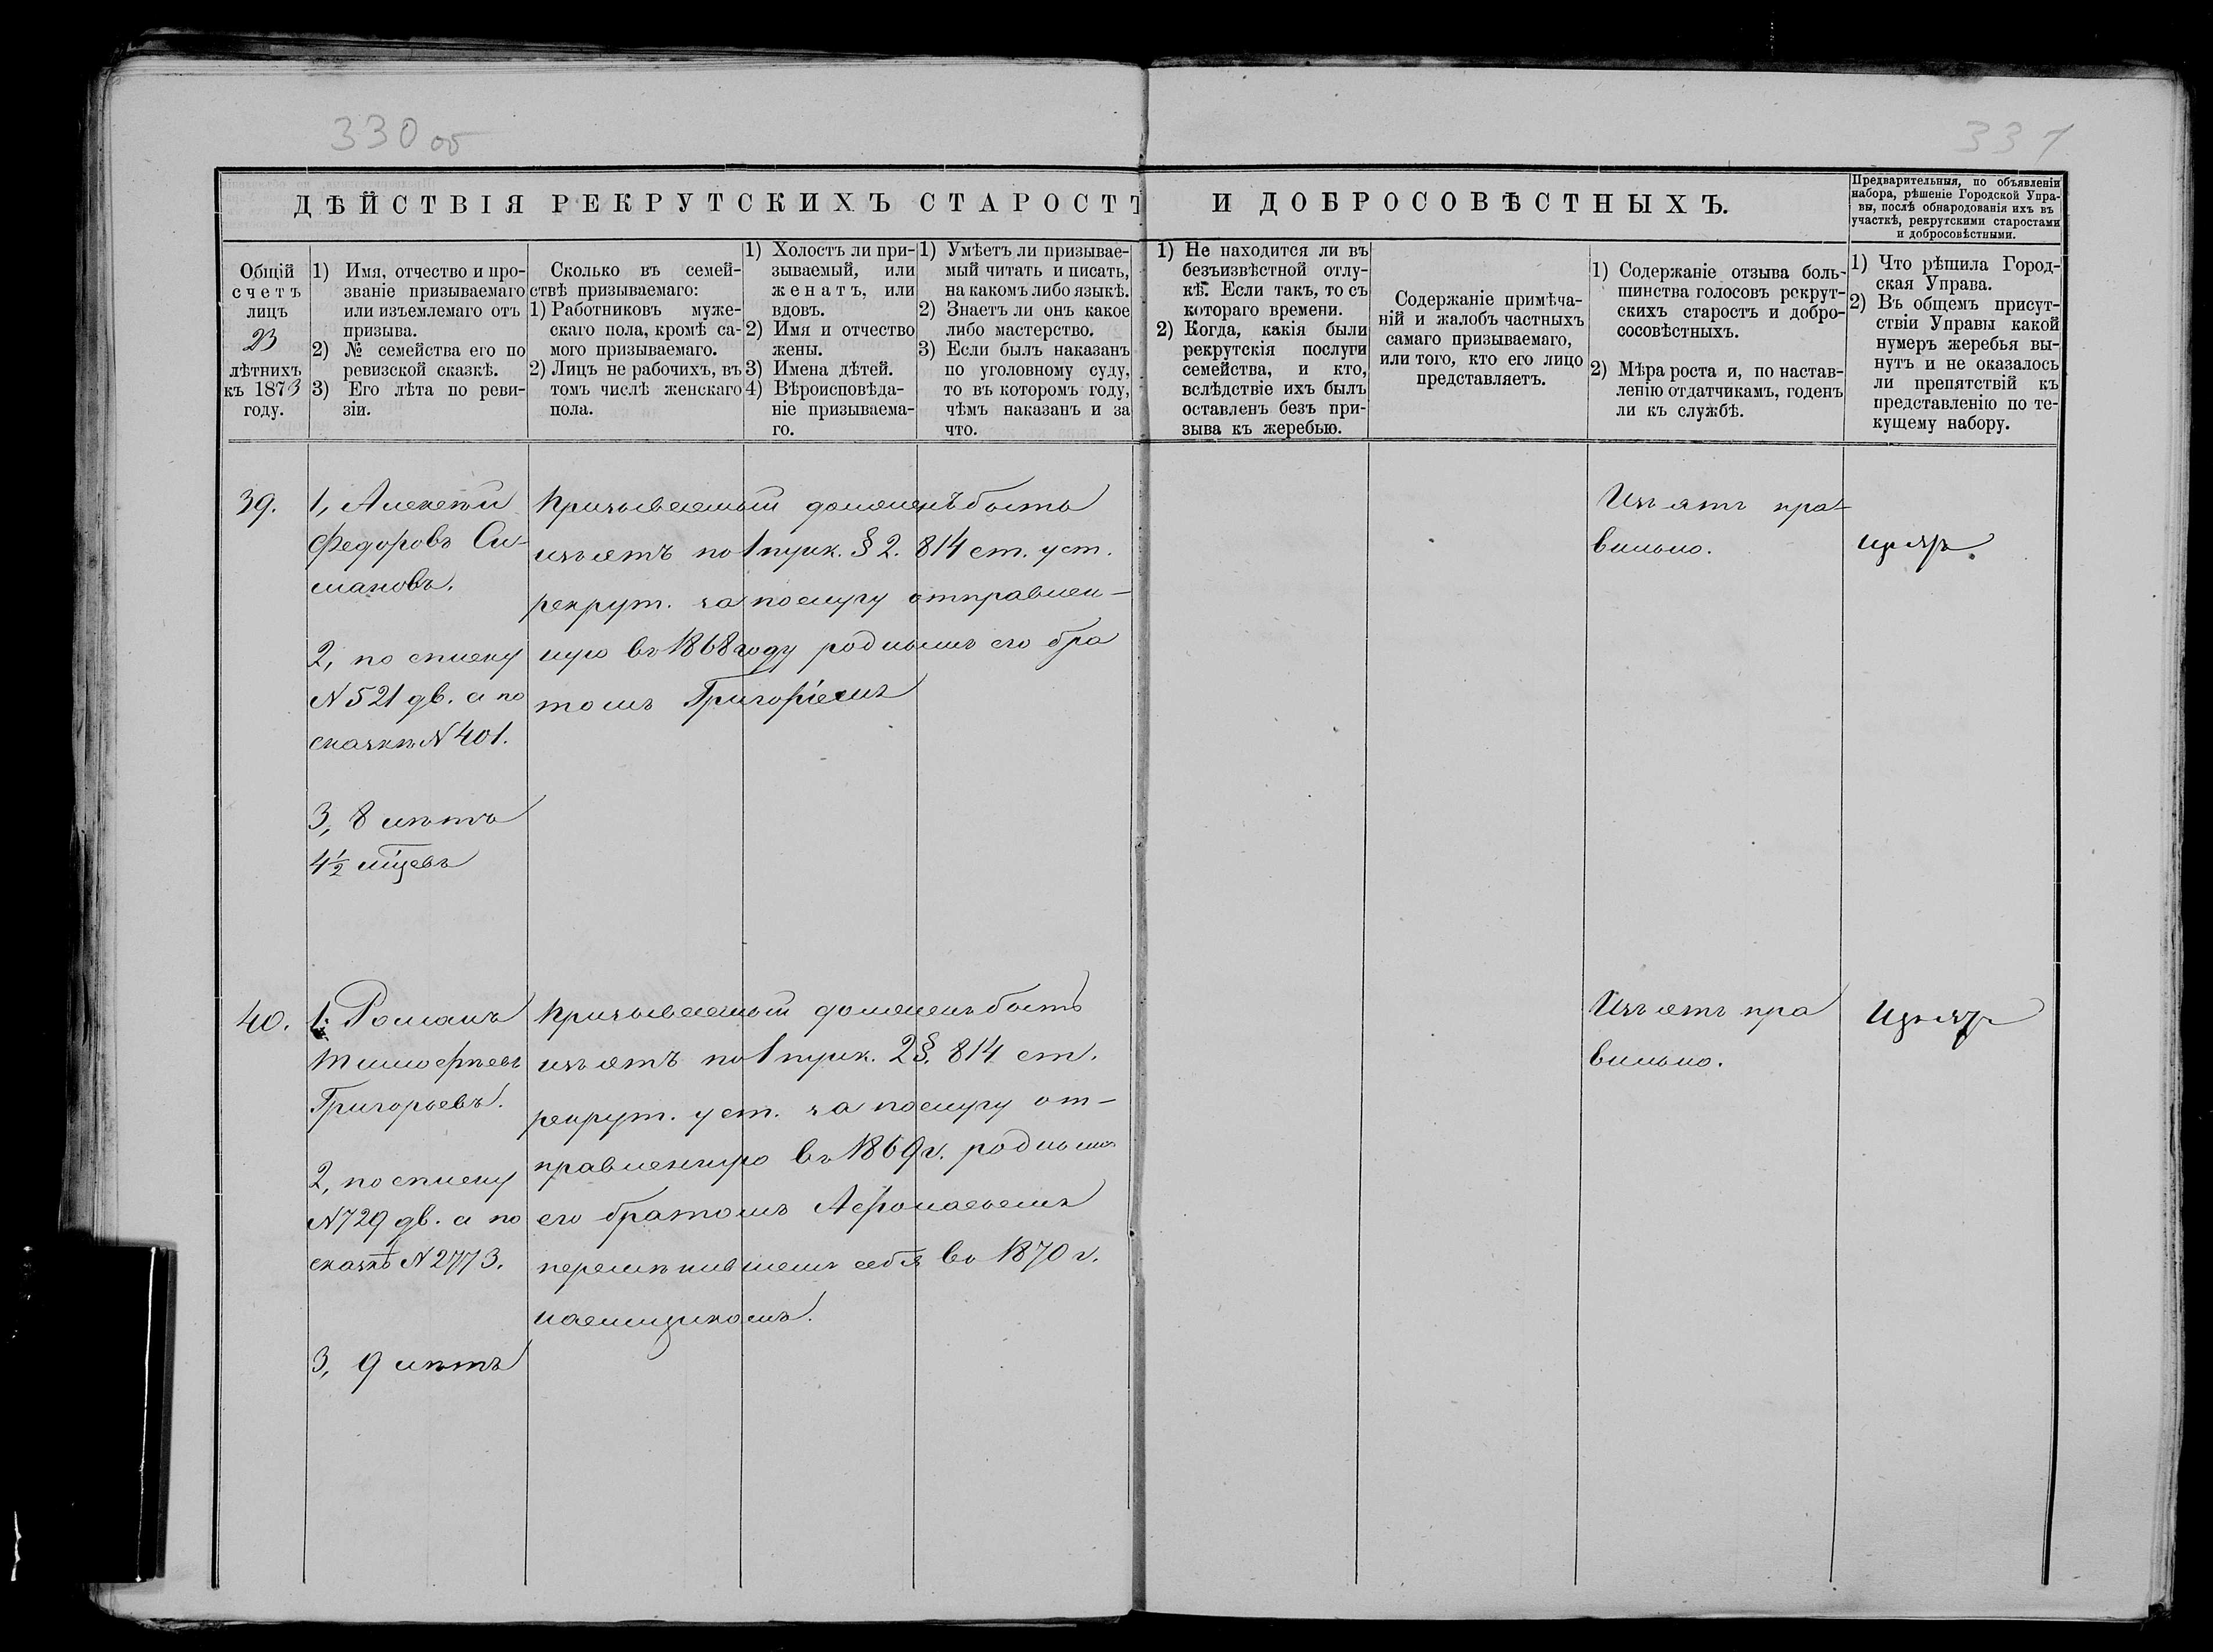 330 об
331
ДѢЙСТВІЯ РЕКРУТСКИХЪ СТАРОСТЪ И ДОБРОСОВѢСТНЫХЪ.
Предварительныя, по объявленіи
набора, рѣшеніе Городской Упра-
вы, послѣ обнародованія ихъ въ
участкѣ, рекрутскими старостами
и добросовѣстными.
Общій
счетъ
лицъ
23
лѣтнихъ
къ 1873
году.
1) Имя, отчество и про-
званіе призываемаго
или изъемлемаго отъ
призыва.
2) № семейства его по
ревизской сказкѣ.
3) Его лѣта по реви-
зіи.
Сколько въ семей-
ствѣ призываемаго:
1) Работниковъ муже-
скаго пола, кромѣ са-
мого призываемаго.
2) Лицъ не рабочихъ, въ
томъ числѣ женскаго
пола.
1) Холостъ ли при-
зываемый, или
женатъ, или
вдовъ.
2) Имя и отчество
жены.
3) Имена дѣтей.
4) Вѣроисповѣда-
ніе призываема-
го.
1) Умѣетъ ли призывае-
мый читать и писать,
на какомъ либо языкѣ.
2) Знаетъ ли онъ какое
либо мастерство.
3) Если былъ наказанъ
по уголовному суду,
то въ которомъ году,
чѣмъ наказанъ и за
что.
1) Не находится ли въ
безъизвѣстной отлу-
кѣ. Если такъ, то съ
котораго времени.
2) Когда, какія были
рекрутскія послуги
семейства, и кто,
вслѣдствіе ихъ былъ
оставленъ безъ при-
зыва къ жеребью.
Содержаніе примѣча-
ній и жалобъ частныхъ
самаго призываемаго,
или того, кто его лицо
представляетъ.
1) Содержаніе отзыва боль-
шинства голосовъ рекрут-
скихъ старостъ и добро-
сосовѣстныхъ.
2) Мѣра роста и, по настав-
ленію отдатчикамъ, годенъ
ли къ службѣ.
1) Что рѣшила Город-
ская Управа.
2) Въ общемъ присут-
ствіи Управы какой
нумеръ жеребья вы-
нутъ и не оказалось
ли препятствій къ
представленію по те-
кущему набору.
39.
1, Алексѣй
Федоровъ Си-
мановъ.
2, по списку
N 521 дв. а по
сказкѣ N 401.
3, 8 лѣтъ
4½ мѣсцевъ
Призываемый долженъ быть
изъятъ по 1 пунк. § 2. 814 ст. уст.
рекрут. за послугу отправлен-
ную въ 1868 году роднымъ его бра
томъ Григоріемъ
Изъятъ пра-
вильно.
40.
1. Романъ
Тимофѣевъ
Григорьевъ.
2, по списку
N 729 дв. а по
сказкѣ N 2773.
3, 9 лѣтъ
Призываемый долженъ быть
изъятъ по 1 пунк. 2 §. 814 ст.
рекрут. уст. за послугу от-
правленную въ 1869 г. роднымъ
его братомъ Афонасьемъ
перемѣнившемъ себя въ 1870 г.
наемщикомъ.
Изъятъ пра
вильно.